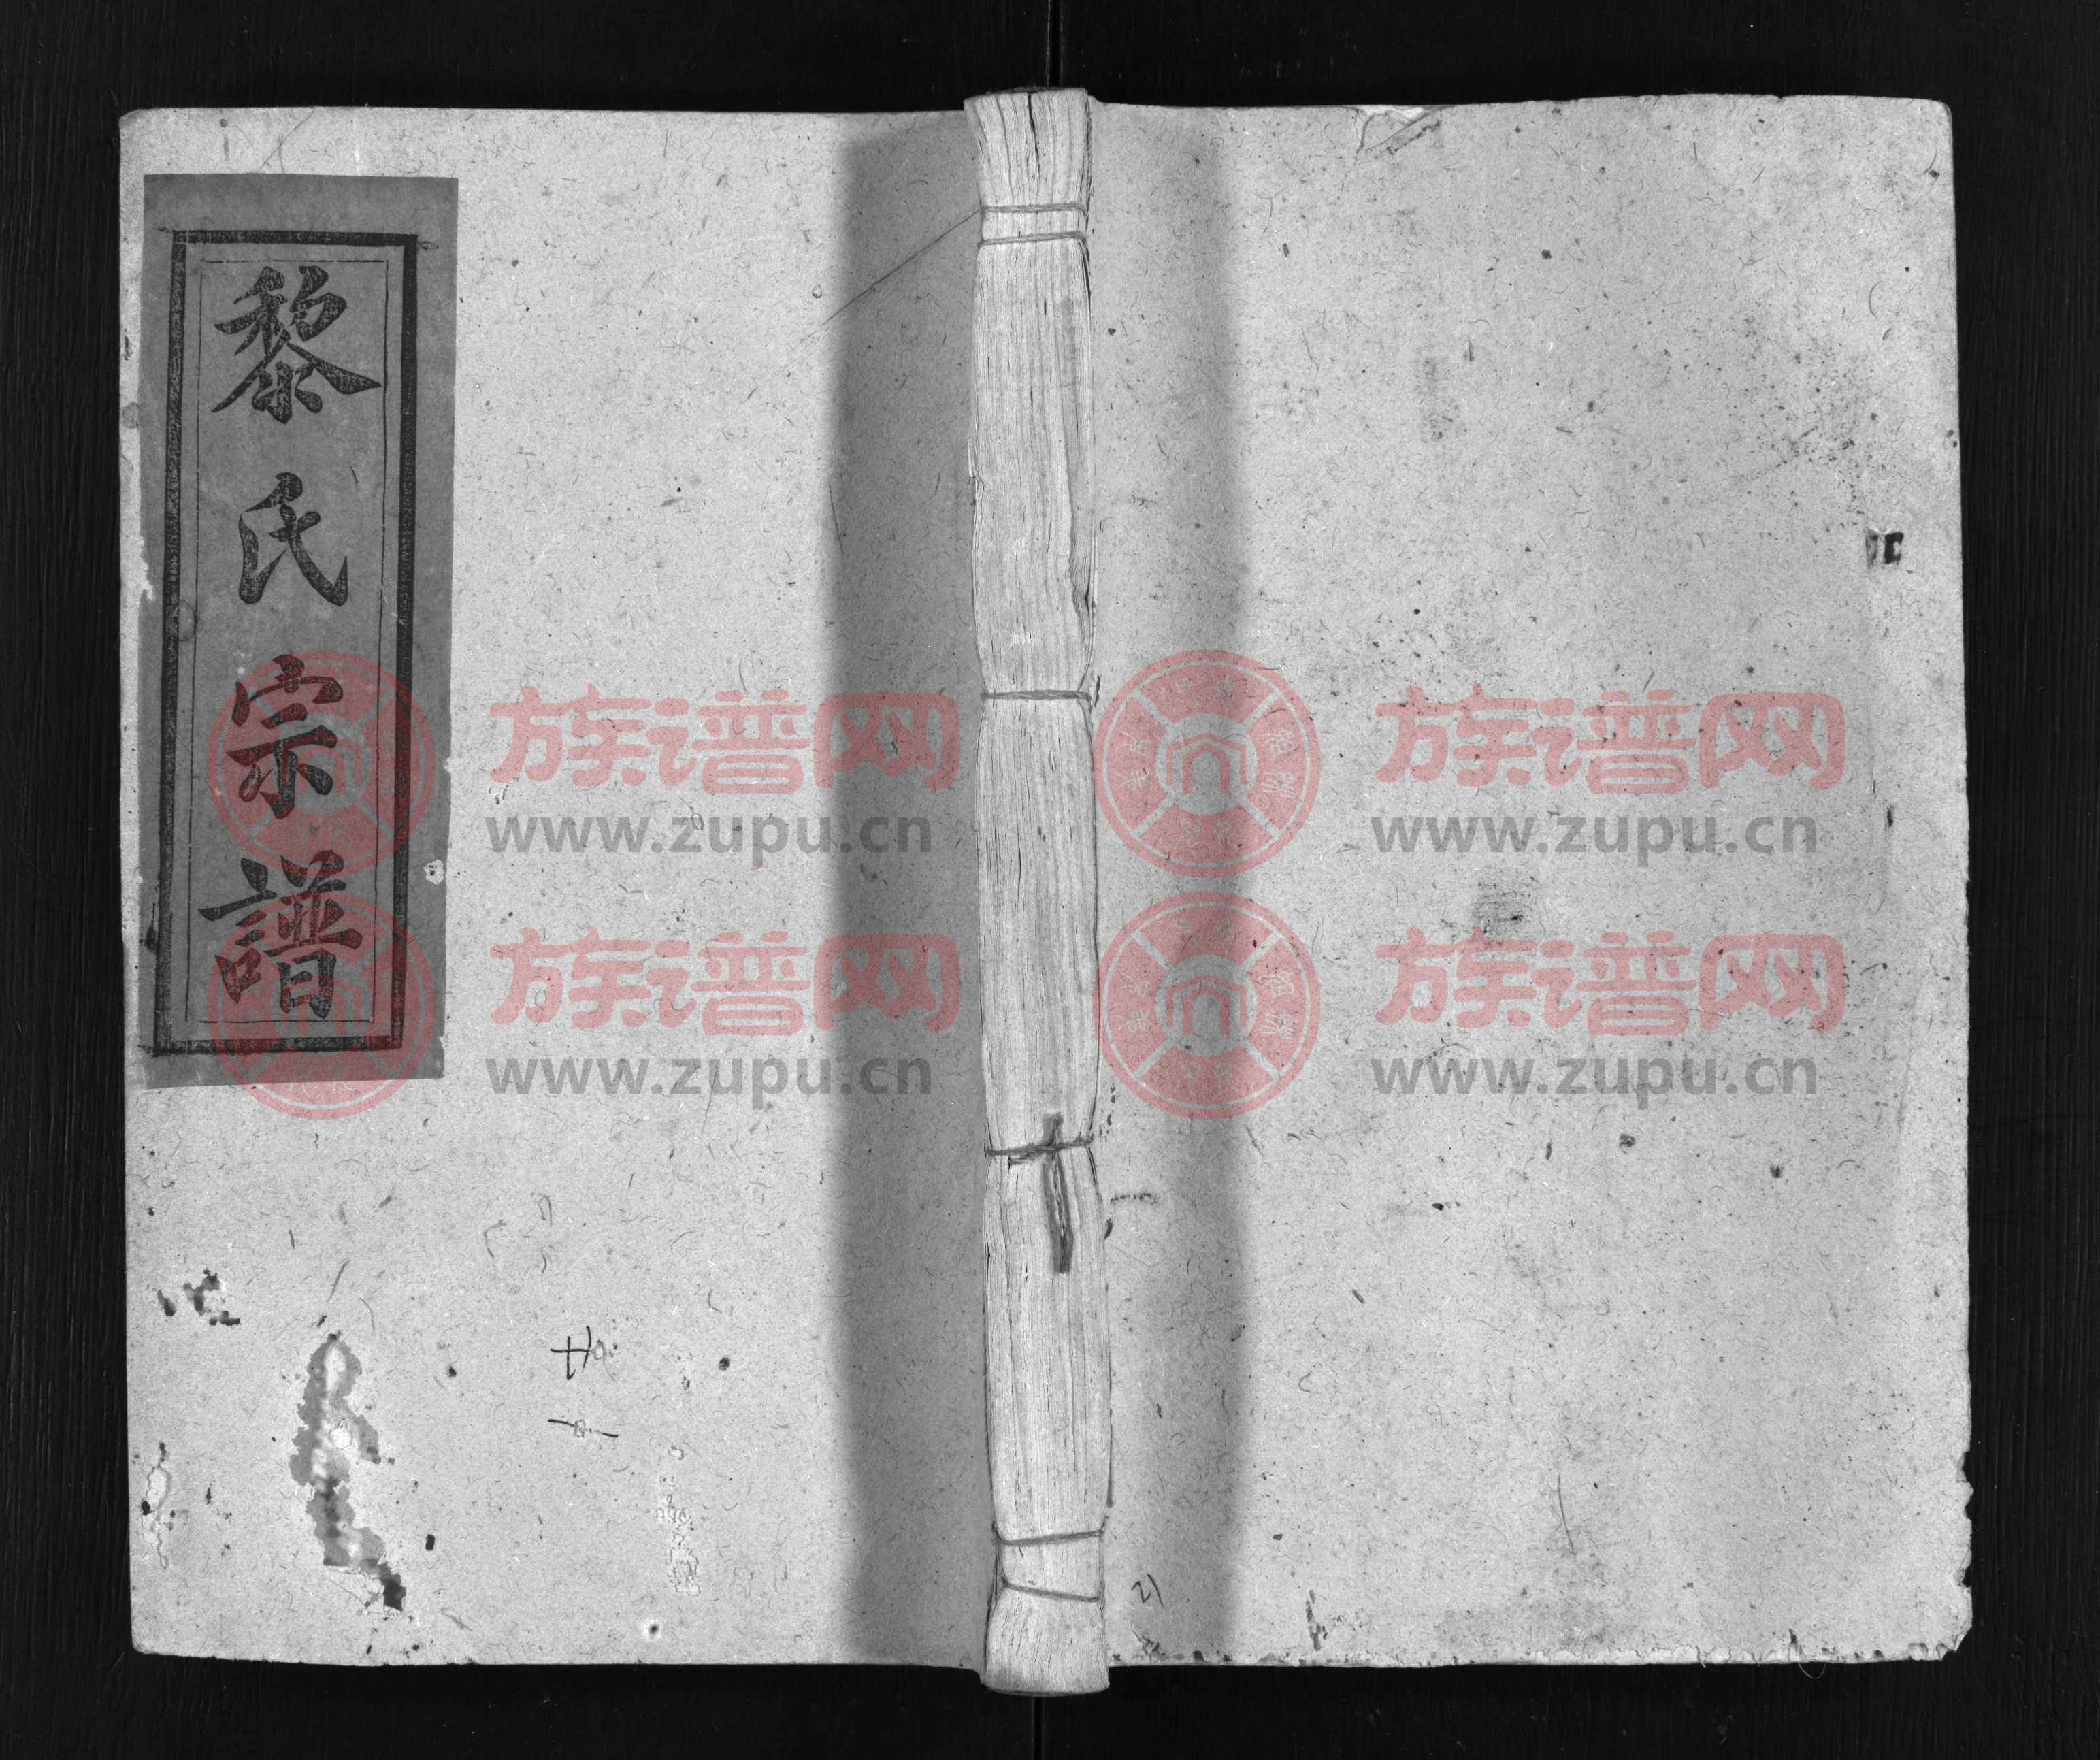 黎氏宗譜
廿一
族谱网
www.zupu.cn
族谱网
www.zupu.cn
族谱网
www.zupu.cn
族谱网
www.zupu.cn